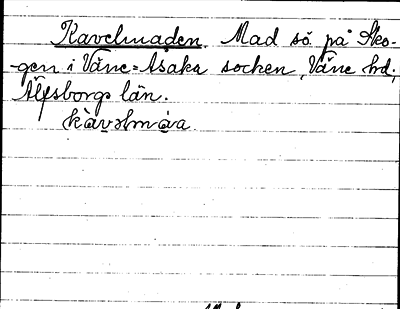 Kavelmaden. Mad sö på Sko-
gen i Väne-Åsaka socken, Väne hd,
Älfsborgs län.
kàvəlmàa.